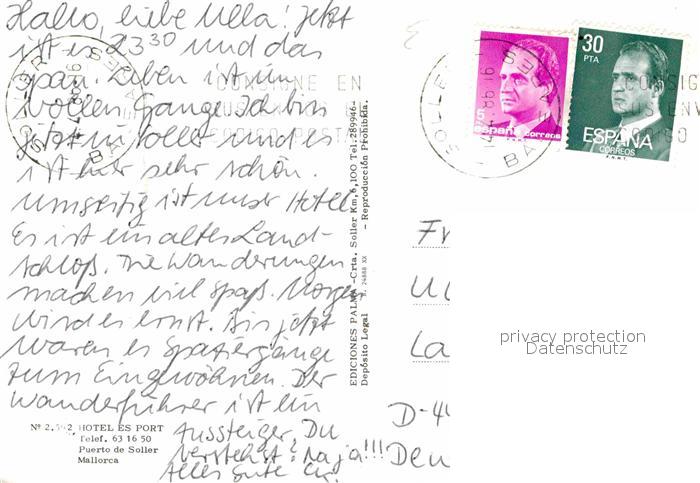 Hallo, liebe Ulla! Jetzt
ist es 23 30 und das
span. Leben ist im
vollen Gange. Ich bin
jetzt in Soller und es
ist hier sehr schön.
Umseitig ist unser Hotel
Es ist ein altes Land-
schloß. Die Wanderungen
machen viel Spaß. Morgen
wird es ernst. Bis jetzt
waren es Spaziergänge
zum Eingewöhnen. Der
Wanderführer ist ein
Aussteiger, Du
verstehst? Na ja!!!
Alles Gute
Nº 2. HOTEL ES PORT
Telef. 63 16 50
Puerto de Soller
Mallorca
EDICIONES PALMA -Crta. Soller Km, 6,100 Tel. 289946-
Depósito Legal B. 24888 XX - Reproducción Prohibida.
CONSIGNE EN
POSTA
SOLLER
BALEARES
5
españa correos
F.N.M.T.
30
PTA
ESPAÑA
CORREOS
F.N.M.T.
CONSIGNE
Fr
Ul
La
D-4
Deu
privacy protection
Datenschutz